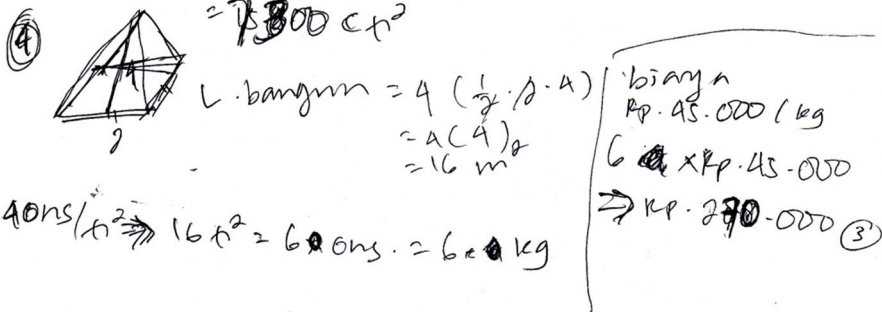 ④
= 15300 cm²
4
2
L. bangun = 4 (1/2 . 2 . 4)
= 4 (4)
= 16 m²
4 ons/m² ⇒ 16 m² = 60 ons. = 6 kg
biaya
Rp. 45.000 / kg
6 x Rp. 45.000
⇒ Rp. 270.000 ③